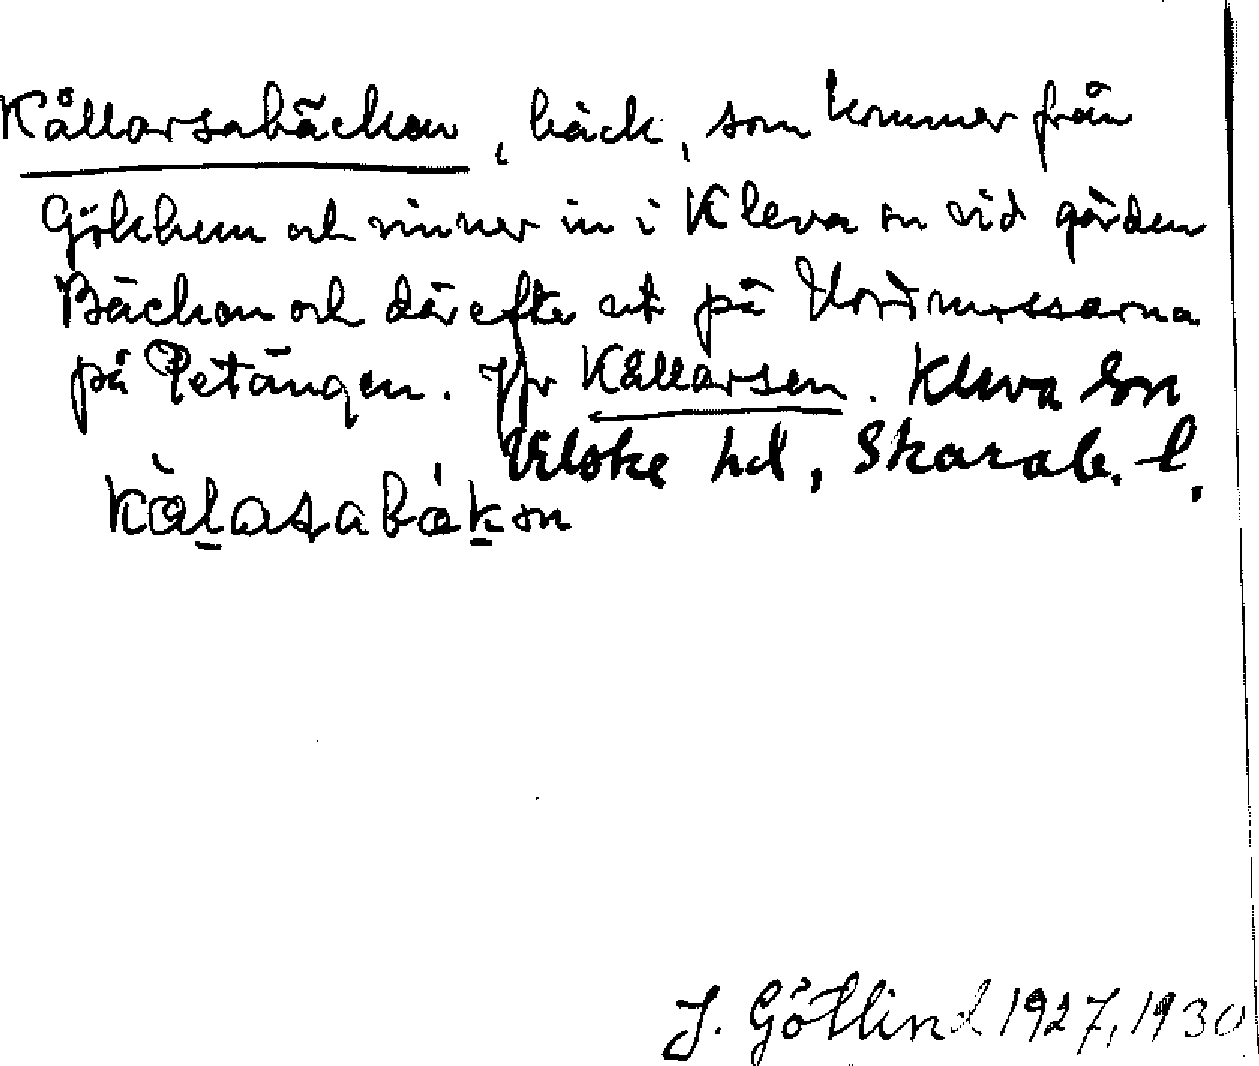 Kållarsabäcken, bäck, som kommer från
Gökhem och rinner in i Kleva sn vid gården
Bäcken och därefter ut på Hordmossarna
på Petängen. Jfr Kållarsen. Kleva sn
Vilske hd, Skarab. l.
kålasabäkən
J. Götlind 1927, 1930